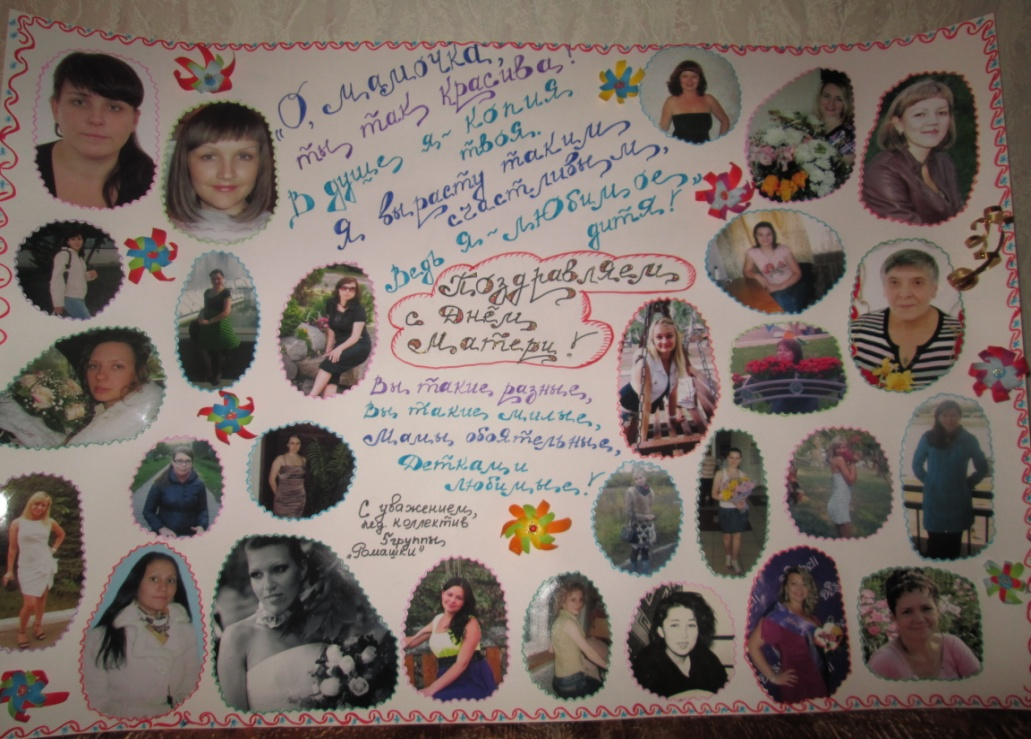 "О, мамочка,
ты так красива!
В душе я - копия
твоя.
Я вырасту таким
счастливым,
Ведь я - любимое
дитя!"
Поздравляем
с Днём
Матери!
Вы такие разные,
Вы такие милые,
Мамы обоятельные,
Детками
любимые!
С уважением,
пед. коллектив
5 группы
"Ромашки"